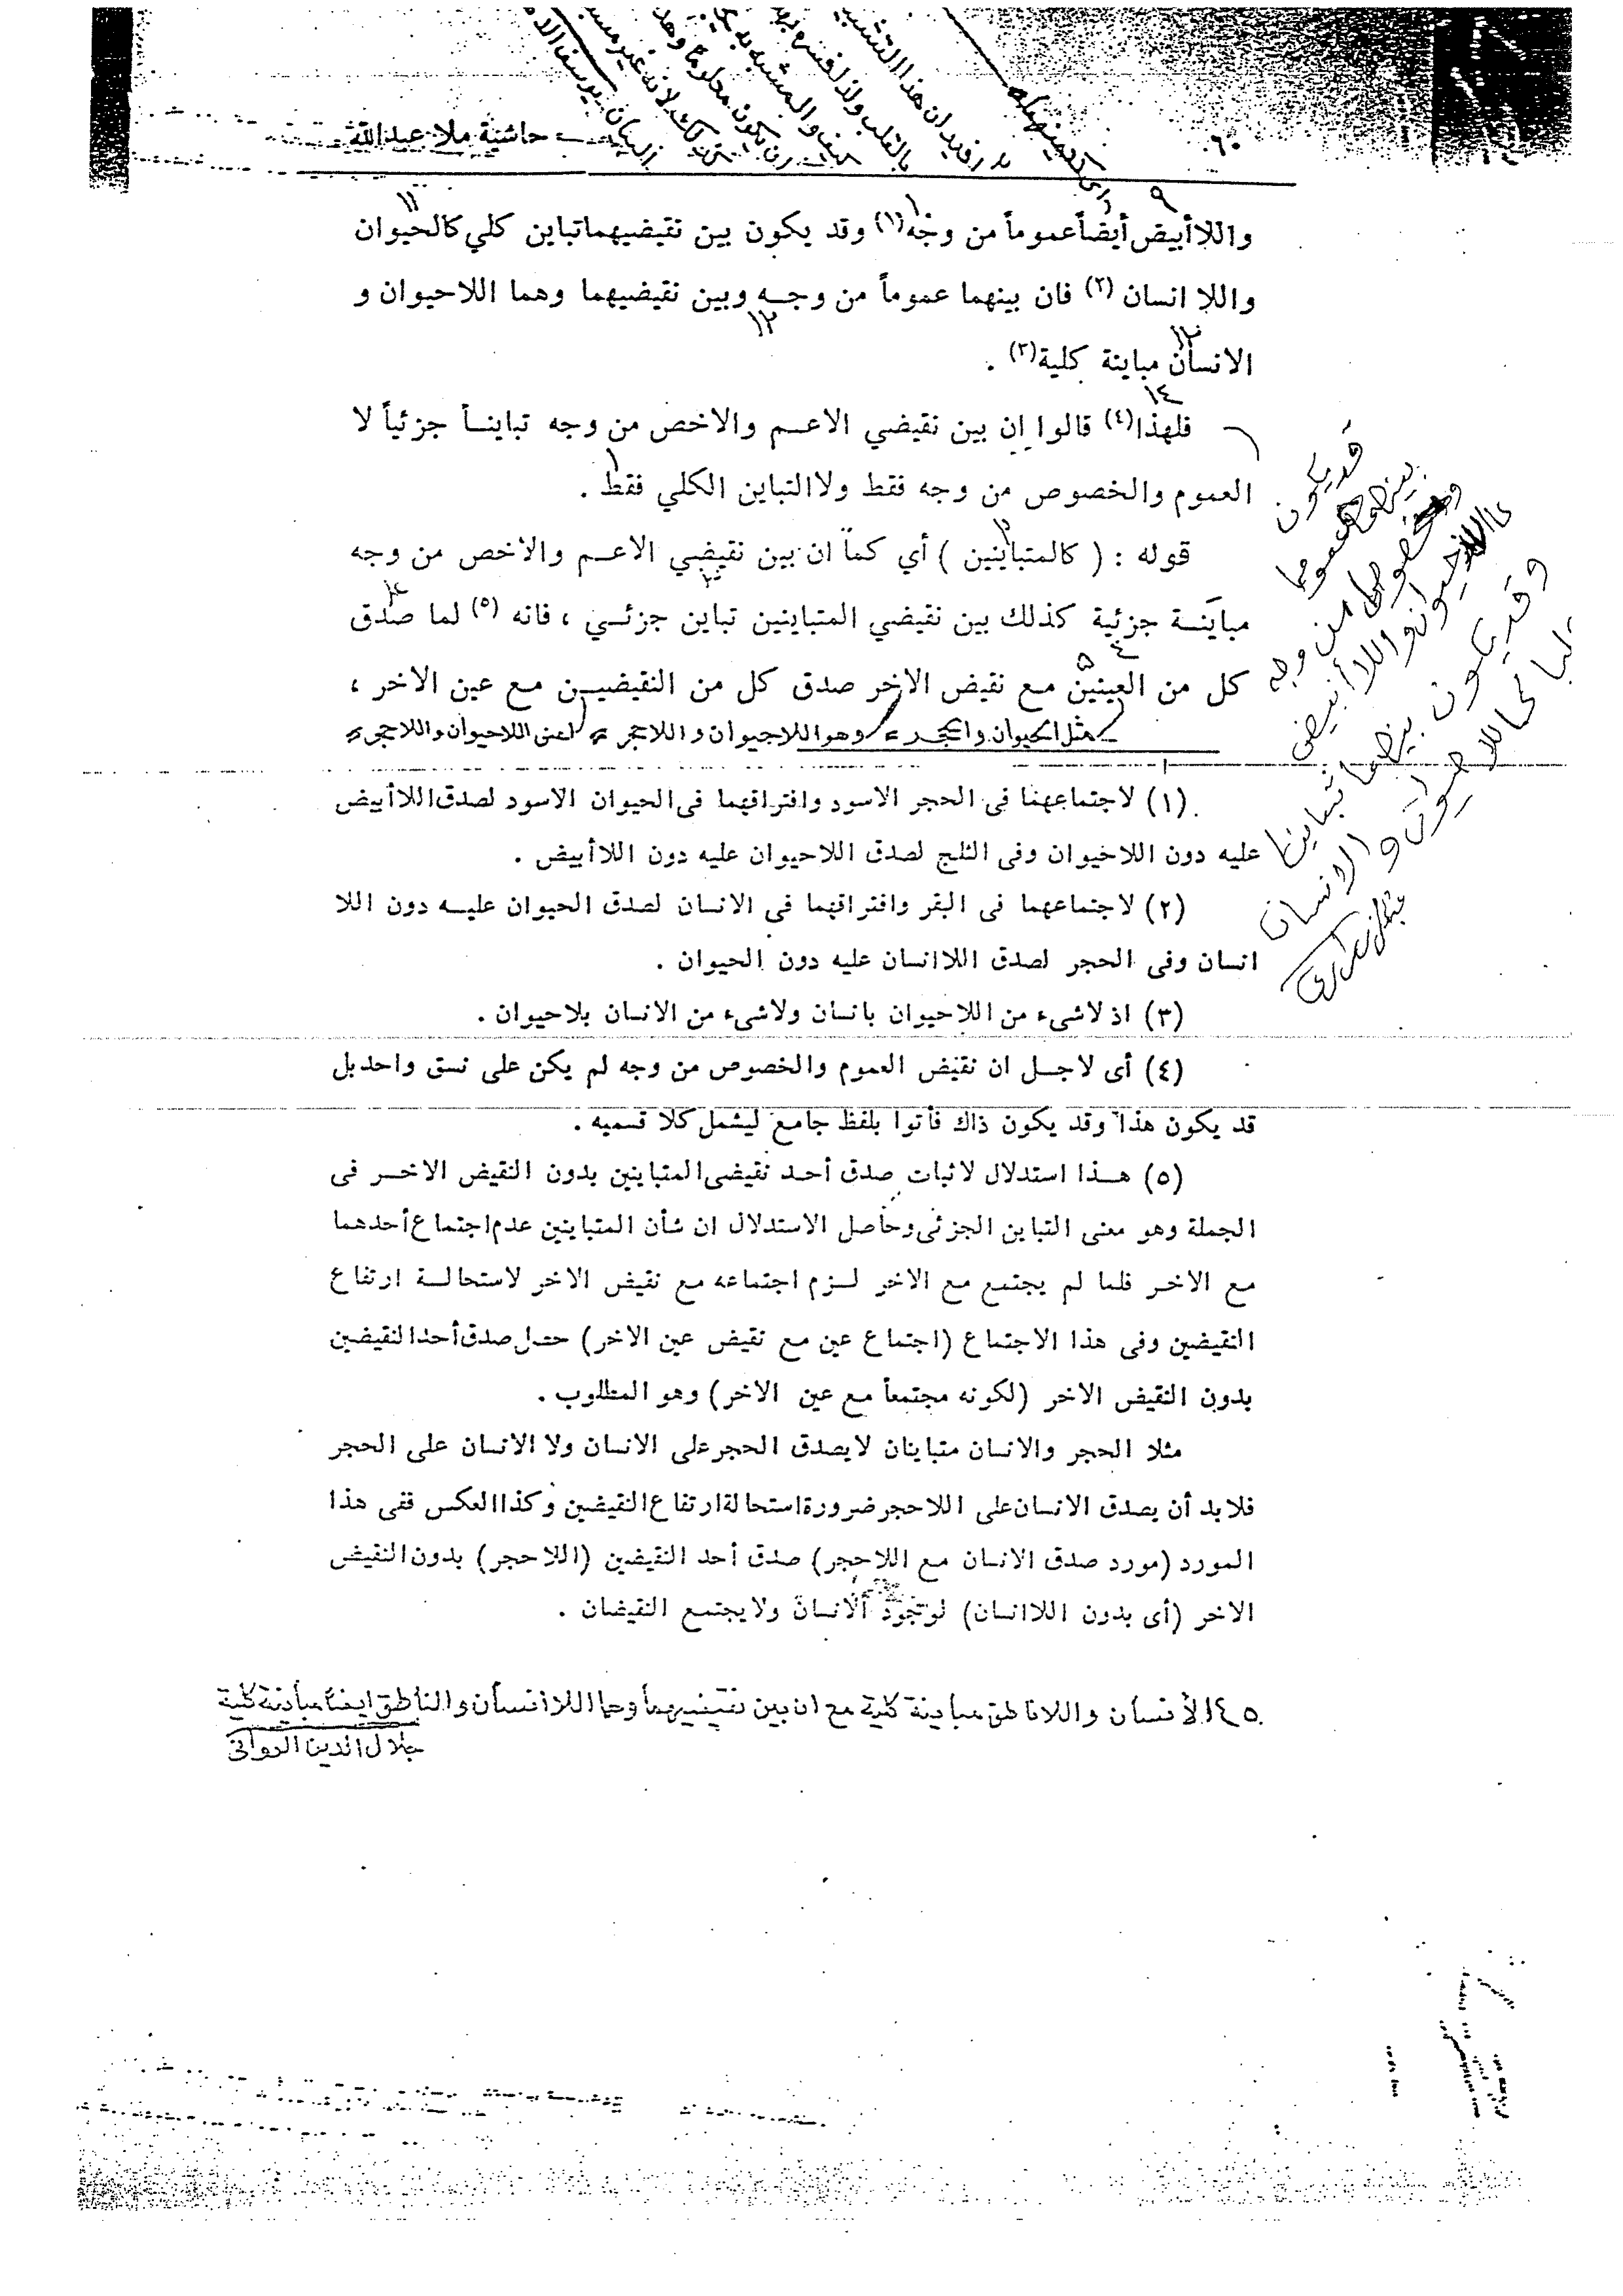 ٦٠
حاشية ملا عبدالله
واللاأبيض أيضاً عموماً من وجه (١) وقد يكون بين نقيضيهما تباين كلي كالحيوان
واللا انسان (٢) فان بينهما عموماً من وجــه وبين نقيضيهما وهما اللاحيوان و
الانسان مباينة كلية (٣) .
فلهذا (٤) قالوا ان بين نقيضي الاعــم والاخص من وجه تباينــاً جزئياً لا
العموم والخصوص من وجه فقط ولا التباين الكلي فقط .
قوله : ( كالمتباينين ) أي كما ان بين نقيضي الاعــم والاخص من وجه
مباينــة جزئية كذلك بين نقيضي المتباينين تباين جزئــي ، فانه (٥) لما صدق
كل من العينين مـع نقيض الاخر صدق كل من النقيضيــن مـع عين الاخر ،
مثل الحيوان والحجر وهو اللاحيوان واللاحجر اعنى اللاحيوان واللاحجر
(١) لاجتماعهما فى الحجر الاسود وافتراقهما فى الحيوان الاسود لصدق اللاأبيض
عليه دون اللاحيوان وفى الثلج لصدق اللاحيوان عليه دون اللاأبيض .
(٢) لاجتماعهما فى البقر وافتراقهما فى الانسان لصدق الحيوان عليــه دون اللا
انسان وفى الحجر لصدق اللاانسان عليه دون الحيوان .
(٣) اذ لاشىء من اللاحيوان بانسان ولاشىء من الانسان بلاحيوان .
(٤) أى لاجــل ان نقيض العموم والخصوص من وجه لم يكن على نسق واحد بل
قد يكون هذا وقد يكون ذاك فأتوا بلفظ جامع ليشمل كلا قسميه .
(٥) هــذا استدلال لاثبات صدق أحد نقيضى المتباينين بدون النقيض الاخــر فى
الجملة وهو معنى التباين الجزئى وحاصل الاستدلال ان شأن المتباينين عدم اجتماع أحدهما
مـع الاخــر فلما لم يجتمع مع الاخر لــزم اجتماعه مع نقيض الاخر لاستحالــة ارتفاع
النقيضين وفى هذا الاجتماع (اجتماع عين مع نقيض عين الاخر) حصل صدق أحد النقيضين
بدون النقيض الاخر (لكونه مجتمعاً مع عين الاخر) وهو المطلوب .
مثلا الحجر والانسان متباينان لايصدق الحجر على الانسان ولا الانسان على الحجر
فلابد أن يصدق الانسان على اللاحجر ضرورة استحالة ارتفاع النقيضين وكذا العكس ففى هذا
المورد (مورد صدق الانسان مع اللاحجر) صدق أحد النقيضين (اللاحجر) بدون النقيض
الاخر (أى بدون اللاانسان) لوجود الانسان ولايجتمع النقيضان .
قد يكون
بينهما عموما
وخصوصا من وجه
كاللاحيوان واللاأبيض
وقد يكون بينهما تباينا
كليا كاللاحيوان والانسان
كالانسان واللاناطق مباينة كلية مع ان بين نقيضيهما وهما اللاانسان والناطق ايضا مباينة كلية
جلال الدين الدوانى